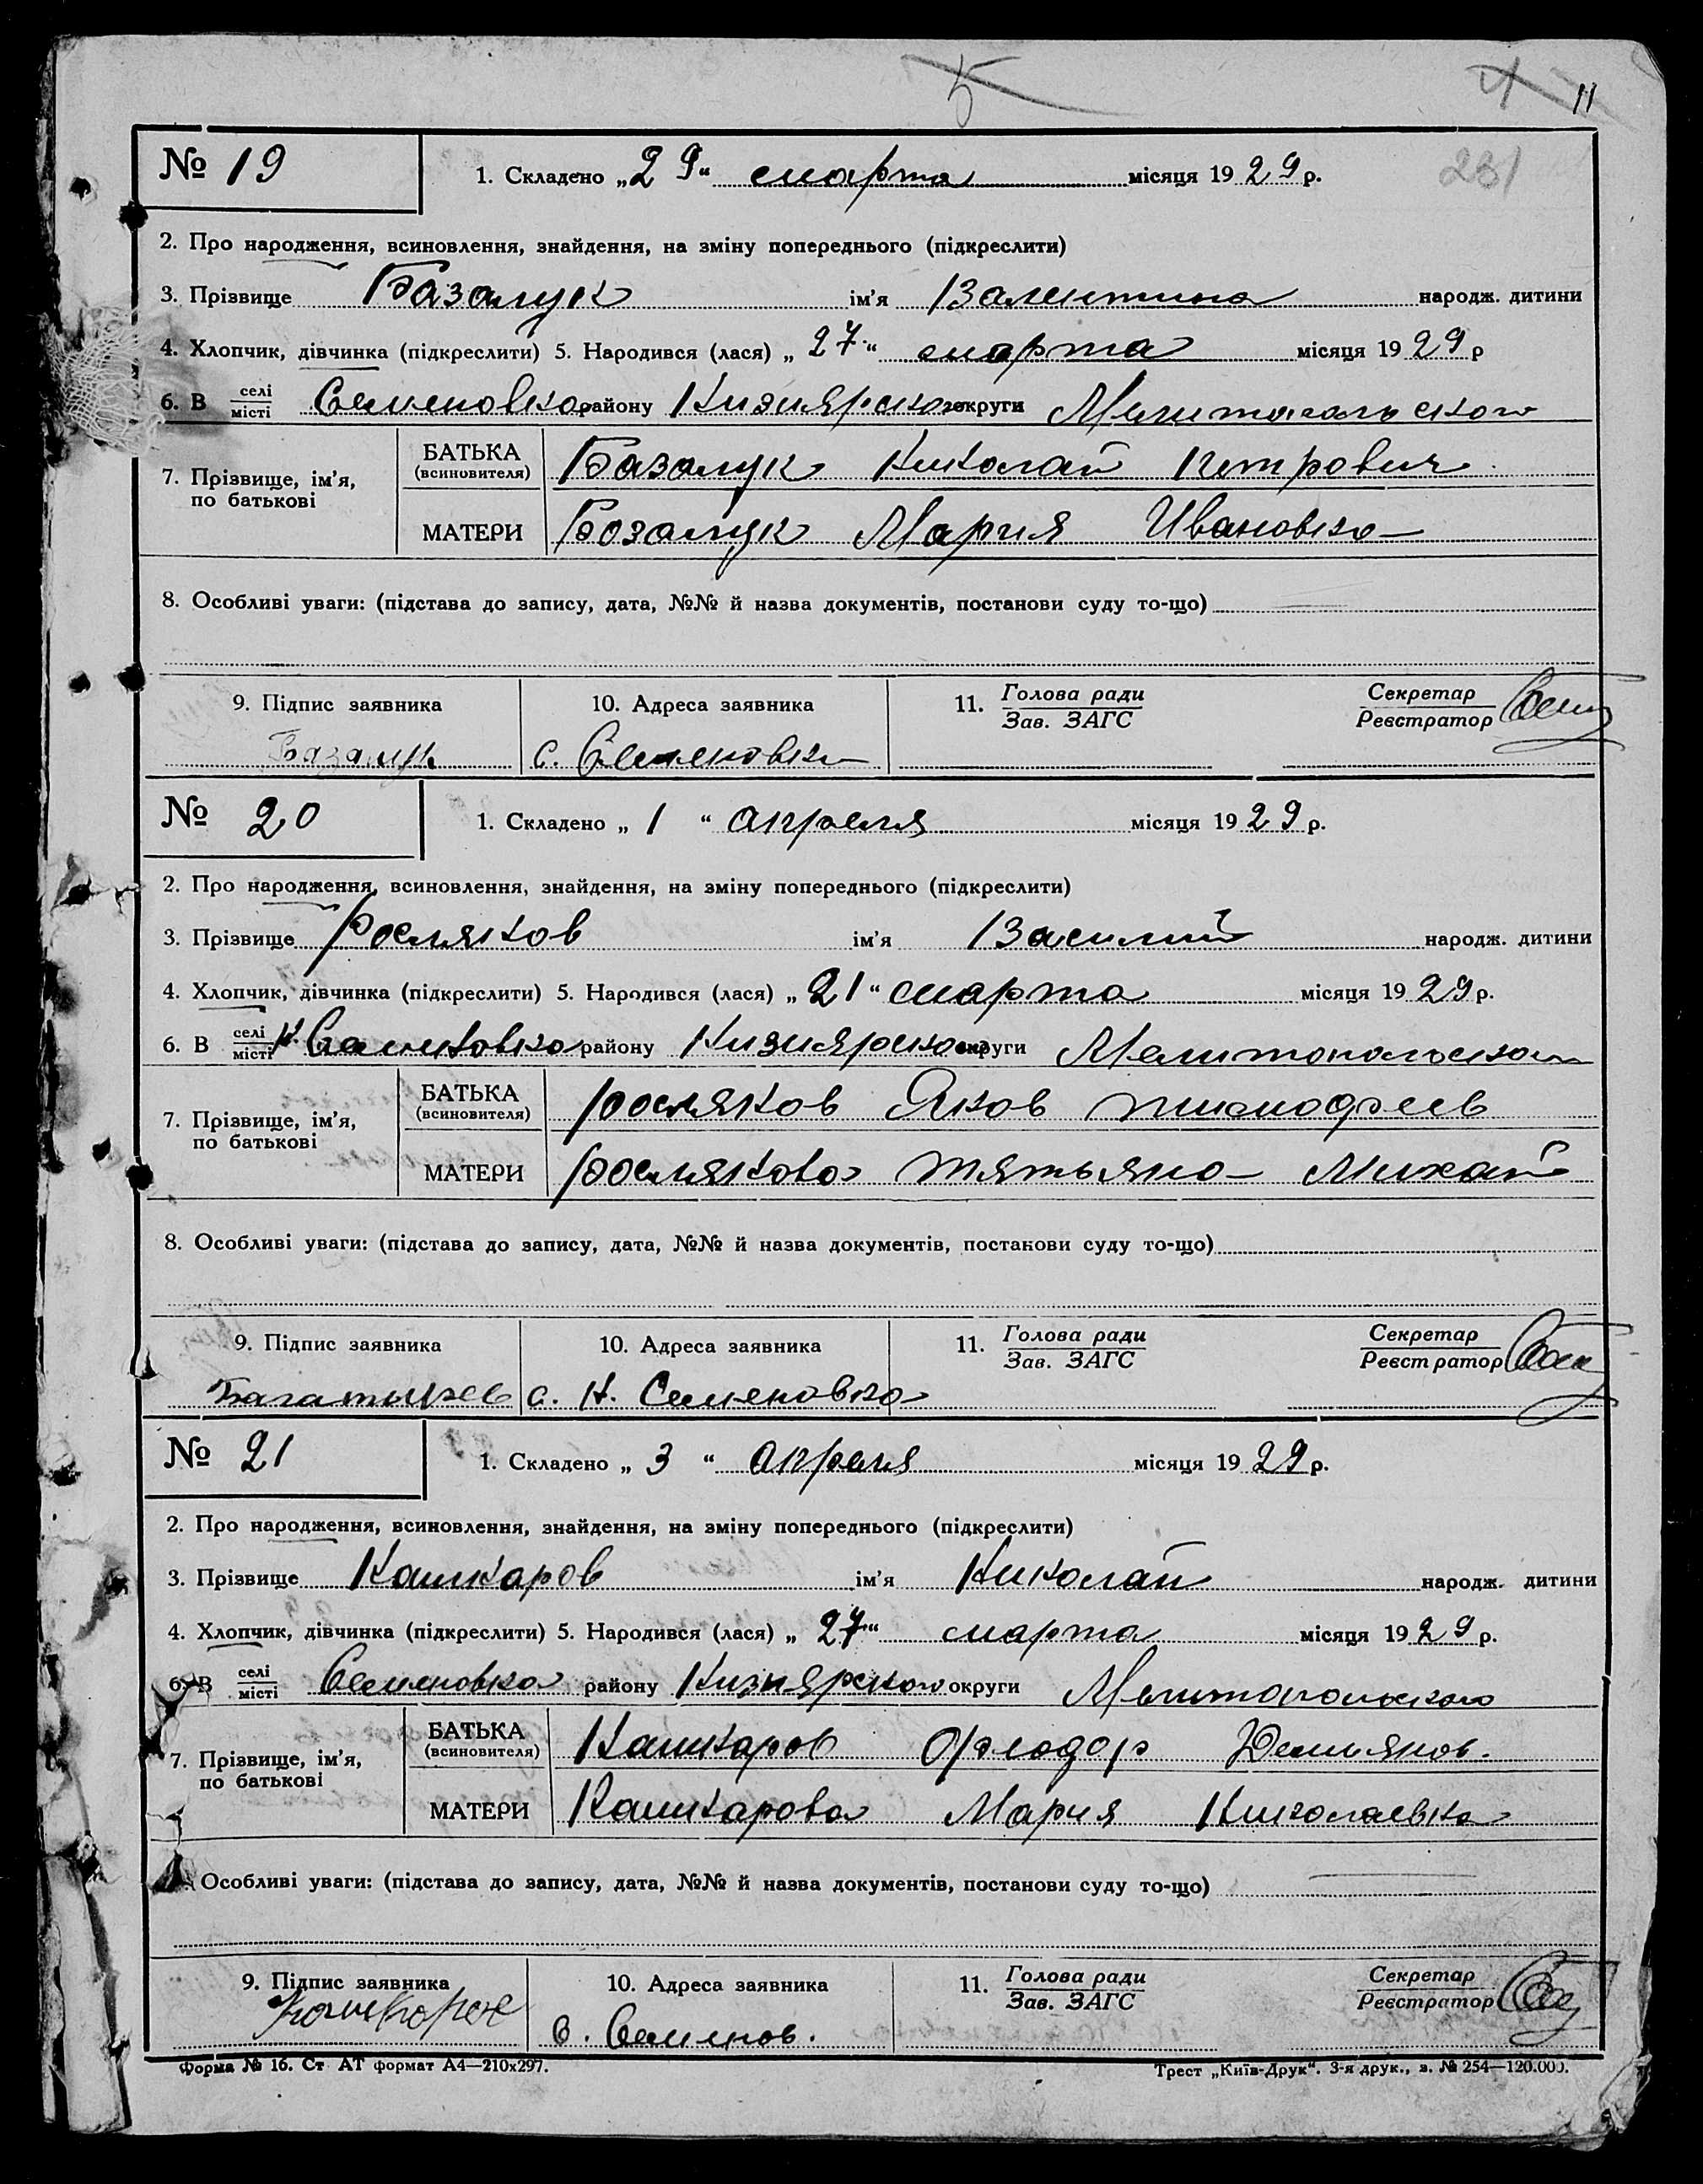 5
11
231
№ 19
1. Складено „29“ марта місяця 1929 р.
2. Про народження, всиновлення, знайдення, на зміну попереднього (підкреслити)
3. Прізвище Базалук ім'я Валентина народж. дитини
4. Хлопчик, дівчинка (підкреслити) 5. Народився (лася) „27“ марта місяця 1929 р
6. В селі місті Семеновка району Кизиярского округи Мелитопольского
7. Прізвище, ім'я, по батькові
БАТЬКА (всиновителя) Базалук Николай Петрович
МАТЕРИ Базалук Мария Ивановна
8. Особливі уваги: (підстава до запису, дата, №№ й назва документів, постанови суду то-що)
9. Підпис заявника 10. Адреса заявника 11. Голова ради Зав. ЗАГС Секретар Реєстратор
Базалук с. Семеновка
№ 20
1. Складено „1“ апреля місяця 1929 р.
2. Про народження, всиновлення, знайдення, на зміну попереднього (підкреслити)
3. Прізвище Росляков ім'я Василий народж. дитини
4. Хлопчик, дівчинка (підкреслити) 5. Народився (лася) „21“ марта місяця 1929 р.
6. В селі місті Н. Семеновка району Кизиярского округи Мелитопольского
7. Прізвище, ім'я, по батькові
БАТЬКА (всиновителя) Росляков Яков
МАТЕРИ Рослякова Тятьяна Михай
8. Особливі уваги: (підстава до запису, дата, №№ й назва документів, постанови суду то-що)
9. Підпис заявника 10. Адреса заявника 11. Голова ради Зав. ЗАГС Секретар Реєстратор
Багатырев с. Н. Семеновка
№ 21
1. Складено „3“ апреля місяця 1929 р.
2. Про народження, всиновлення, знайдення, на зміну попереднього (підкреслити)
3. Прізвище Кашкаров ім'я Николай народж. дитини
4. Хлопчик, дівчинка (підкреслити) 5. Народився (лася) „27“ марта місяця 1929 р.
6. В селі місті Семеновка району Кизиярского округи Мелитопольского
7. Прізвище, ім'я, по батькові
БАТЬКА (всиновителя) Кашкаров Демьянов.
МАТЕРИ Кашкарова Мария Николаевна
Особливі уваги: (підстава до запису, дата, №№ й назва документів, постанови суду то-що)
9. Підпис заявника 10. Адреса заявника 11. Голова ради Зав. ЗАГС Секретар Реєстратор
с. Семенов.
Форма № 16. Ст АТ формат А4—210х297. Трест „Київ-Друк“. 3-я друк., з. № 254—120.000.